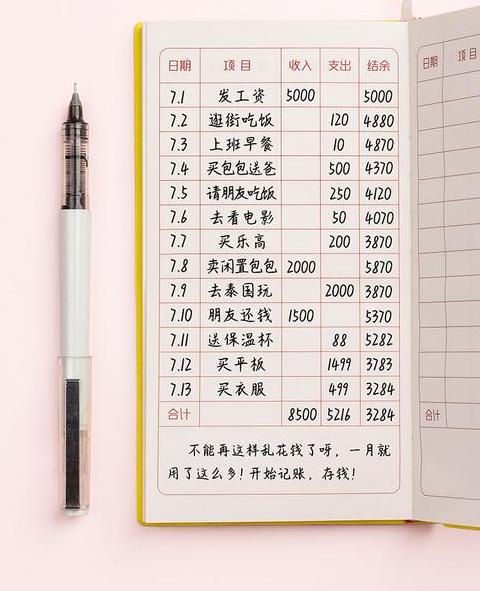 日期 项目 收入 支出 结余
7.1 发工资 5000 5000
7.2 逛街吃饭 120 4880
7.3 上班早餐 10 4870
7.4 买包包送爸 500 4370
7.5 请朋友吃饭 250 4120
7.6 去看电影 50 4070
7.7 买乐高 200 3870
7.8 卖闲置包包 2000 5870
7.9 去泰国玩 2000 3870
7.10 朋友还钱 1500 5370
7.11 送保温杯 88 5282
7.12 买平板 1499 3783
7.13 买衣服 499 3284
合计 8500 5216 3284
不能再这样乱花钱了呀，一月就
用了这么多！开始记账，存钱！
日期 项目
合计